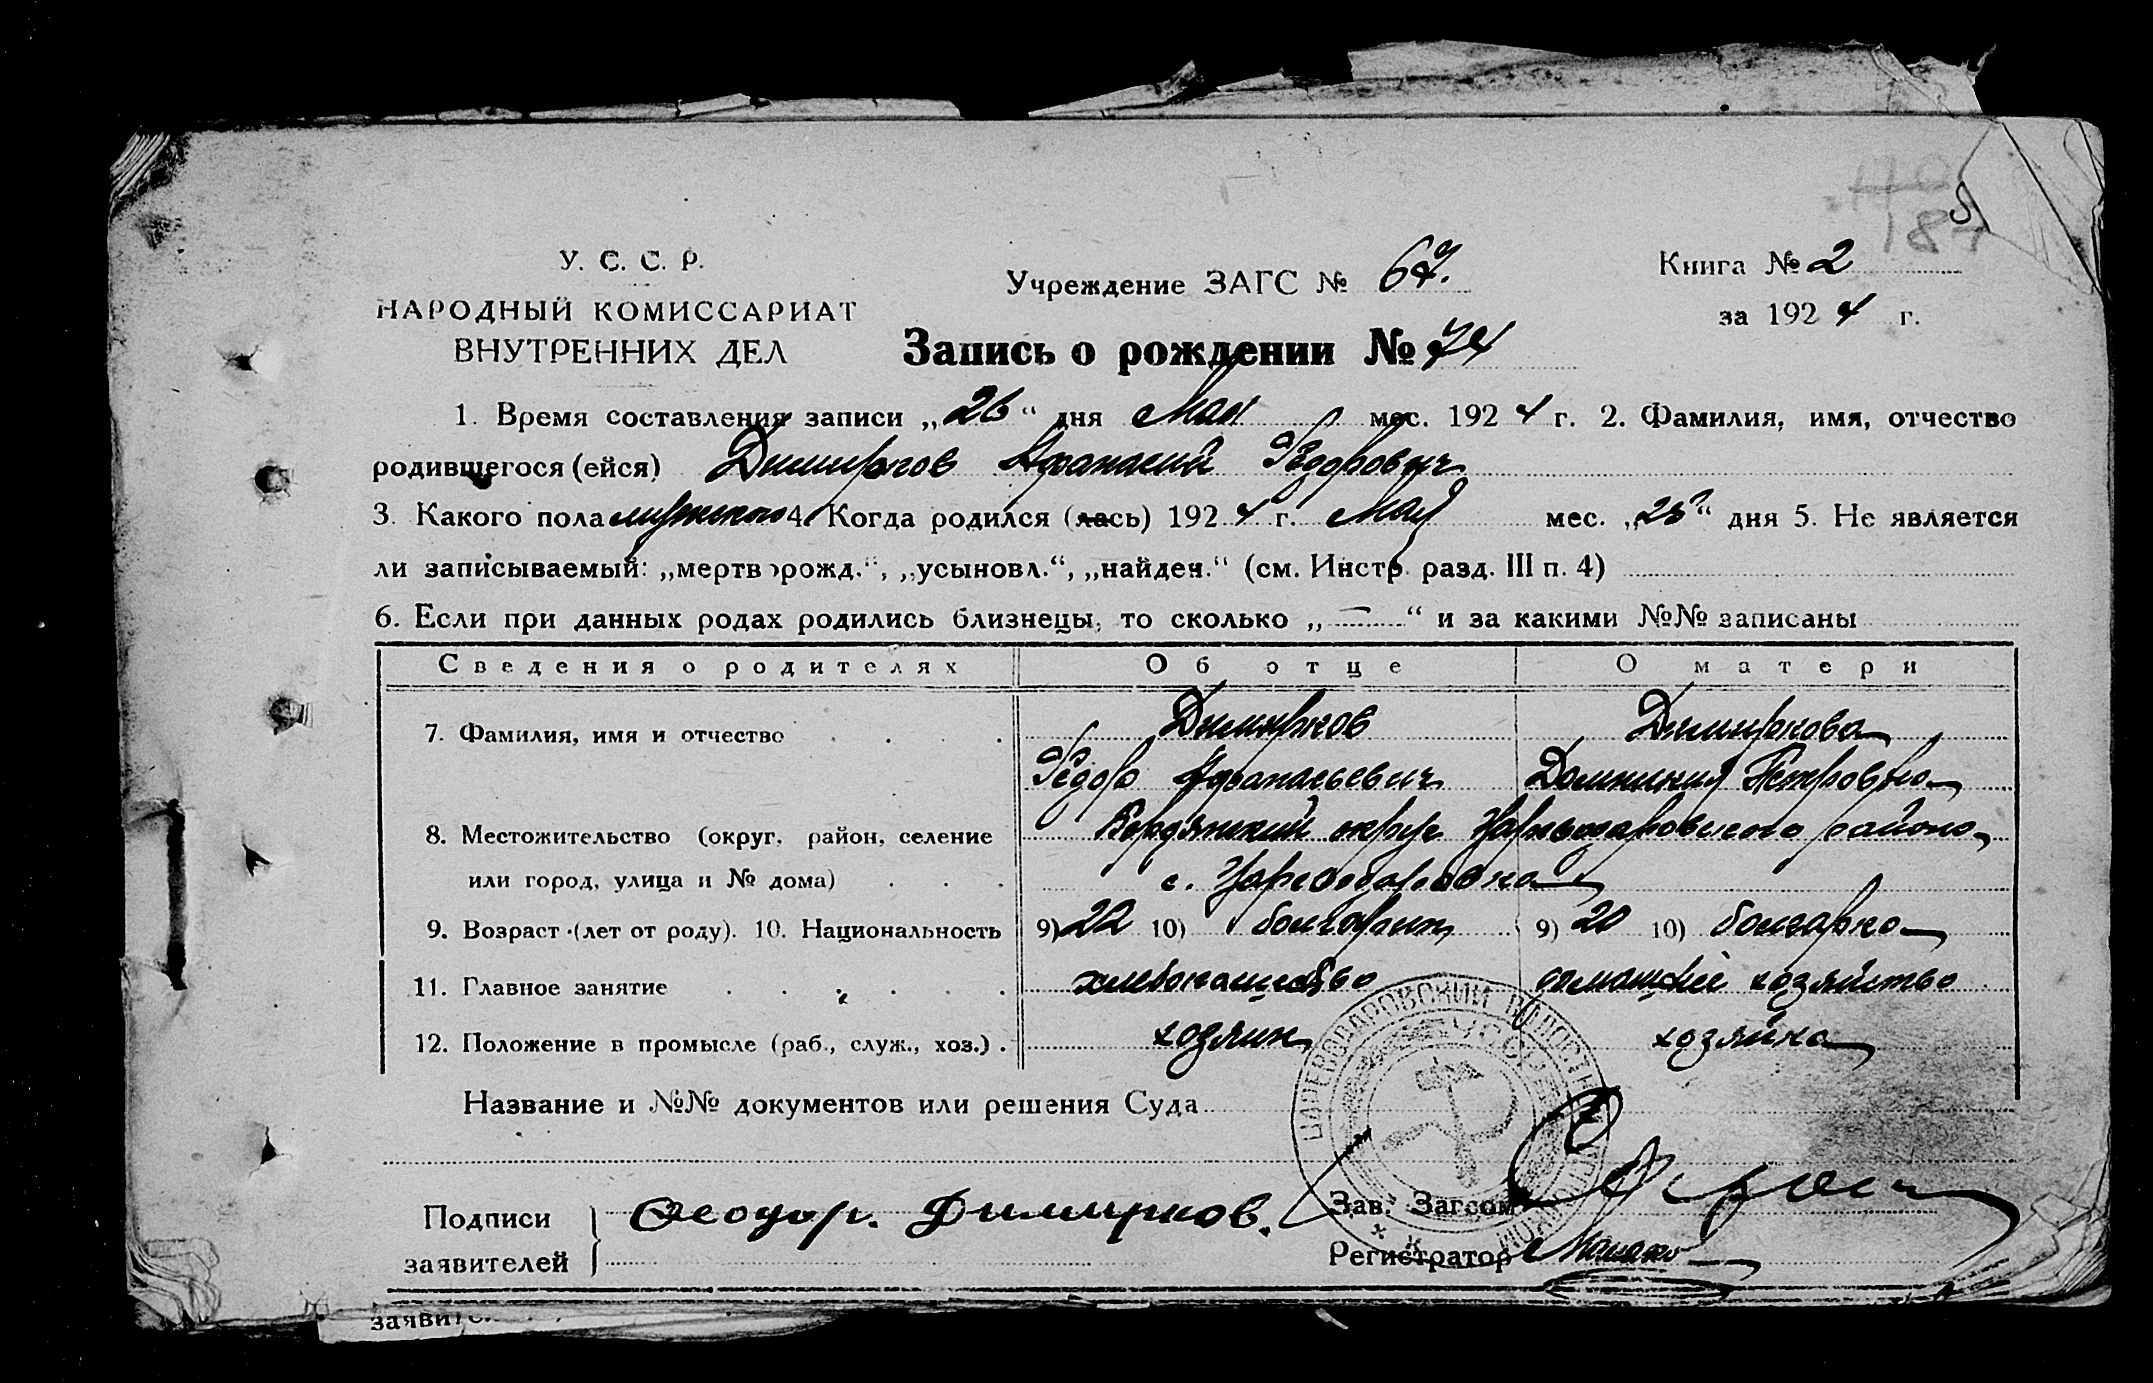 У. С. С. Р.
НАРОДНЫЙ КОМИССАРИАТ
ВНУТРЕННИХ ДЕЛ
Учреждение ЗАГС № 67.
Книга № 2
за 1924 г.
187
Запись о рождении № 74
1. Время составления записи „26“ дня Мая мес. 1924 г. 2. Фамилия, имя, отчество
родившегося (ейся) Димитров Афанасий Фёдорович
3. Какого пола мужского 4. Когда родился (лась) 1924 г. Мая мес. „23“ дня 5. Не является
ли записываемый: „мертворожд.“, „усыновл.“, „найден.“ (см. Инстр. разд. III п. 4)
6. Если при данных родах родились близнецы, то сколько „—“ и за какими №№ записаны
Сведения о родителях Об отце О матери
7. Фамилия, имя и отчество Димурков Димуркова
Фёдор Афанасьевич Домникия Петровна
8. Местожительство (округ, район, селение Бердянский округ Цареводаровского района,
или город, улица и № дома) с. Цареводаровка
9. Возраст (лет от роду). 10. Национальность 9) 22 10) болгарин 9) 20 10) болгарка
11. Главное занятие хлебопашество домашнее хозяйство
12. Положение в промысле (раб., служ., хоз.) хозяин хозяйка
Название и №№ документов или решения Суда
ЦАРЕВОДАРОВСКИЙ
УССР
Подписи
заявителей
Феодор. Димурков.
Зав. Загсом
Регистратор